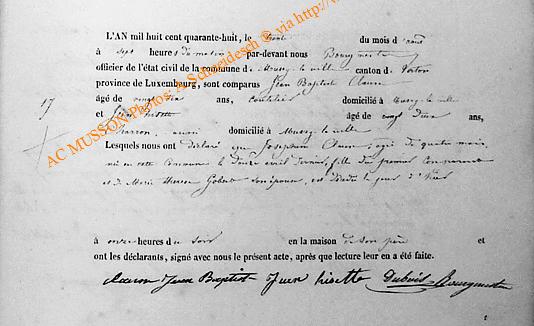 L'AN mil huit cent quarante-huit, le trente du mois d'août
à sept heures du matin par-devant nous Bourgmestre
officier de l'état civil de la commune de Mussy la ville canton de Virton
province de Luxembourg, sont comparus Jean Baptiste
âgé de vingt six ans, domicilié à Mussy la ville
17
et âgé de vingt deux ans,
charron, aussi domicilié à Mussy la ville
Lesquels nous ont déclaré que Josephine âgée de quatre mois,
née en cette Commune le douze avril dernier, fille du premier Comparant
et de Marie Therese Gobert son épouse, est décédée le jour d'hier
à onze heures du soir en la maison de son père et
ont les déclarants, signé avec nous le présent acte, après que lecture leur en a été faite.
Jean Baptist Jean Dubois Bourgmestre
AC MUSSON Photos: A. Schneidesch © via http://w